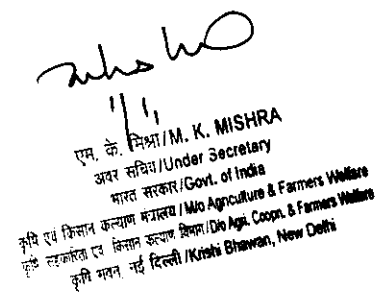 एम. के. मिश्रा/M. K. MISHRA
अवर सचिव/Under Secretary
भारत सरकार/Govt. of India
कृषि एवं किसान कल्याण मंत्रालय/M/o Agriculture & Farmers Welfare
कृषि सहकारिता एवं किसान कल्याण विभाग/D/o Agri, Coopn. & Farmers Welfare
कृषि भवन, नई दिल्ली/Krishi Bhawan, New Delhi